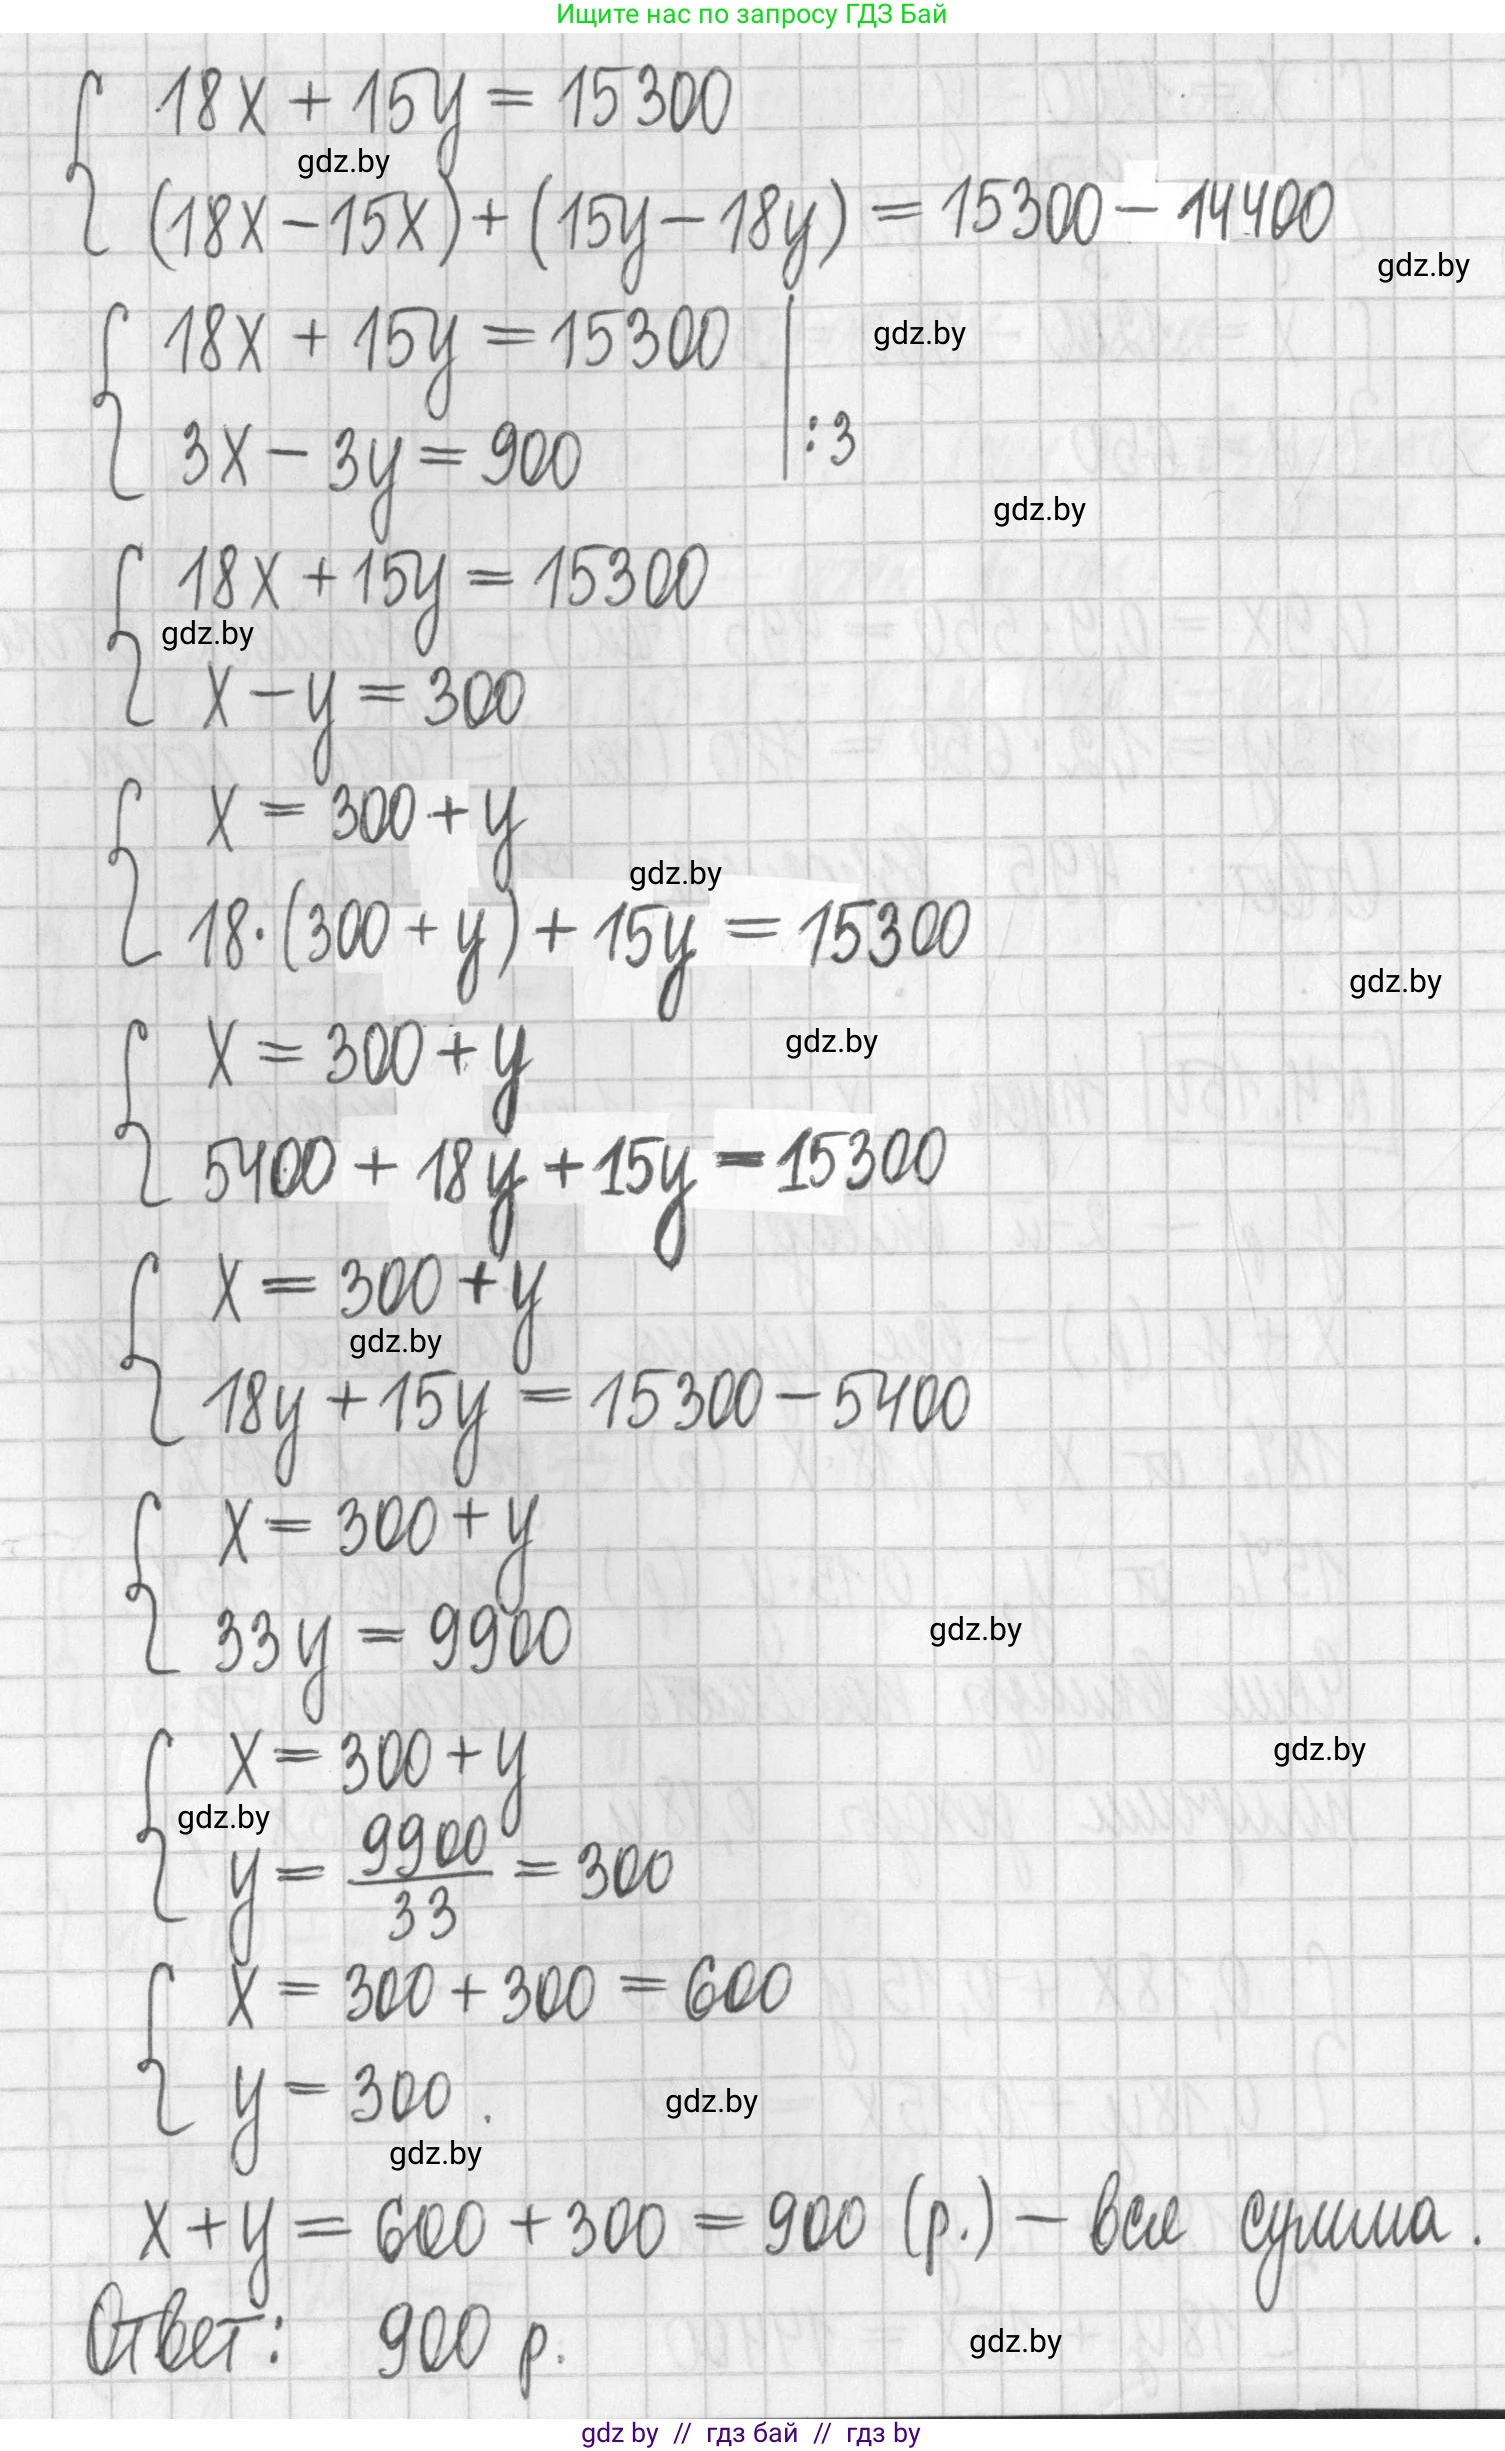 Ищите нас по запросу ГДЗ Бай
18x + 15y = 15300
gdz.by
(18x - 15x) + (15y - 18y) = 15300 - 14400
gdz.by
18x + 15y = 15300
gdz.by
3x - 3y = 900 | :3
gdz.by
18x + 15y = 15300
gdz.by
x - y = 300
x = 300 + y
gdz.by
18·(300 + y) + 15y = 15300
gdz.by
x = 300 + y
gdz.by
5400 + 18y + 15y = 15300
x = 300 + y
gdz.by
18y + 15y = 15300 - 5400
x = 300 + y
33y = 9900
gdz.by
x = 300 + y
gdz.by
gdz.by
y = 9900/33 = 300
x = 300 + 300 = 600
y = 300.
gdz.by
gdz.by
x + y = 600 + 300 = 900 (р.) – вся сумма.
Ответ: 900 р.
gdz.by
gdz by // гдз бай // гдз by